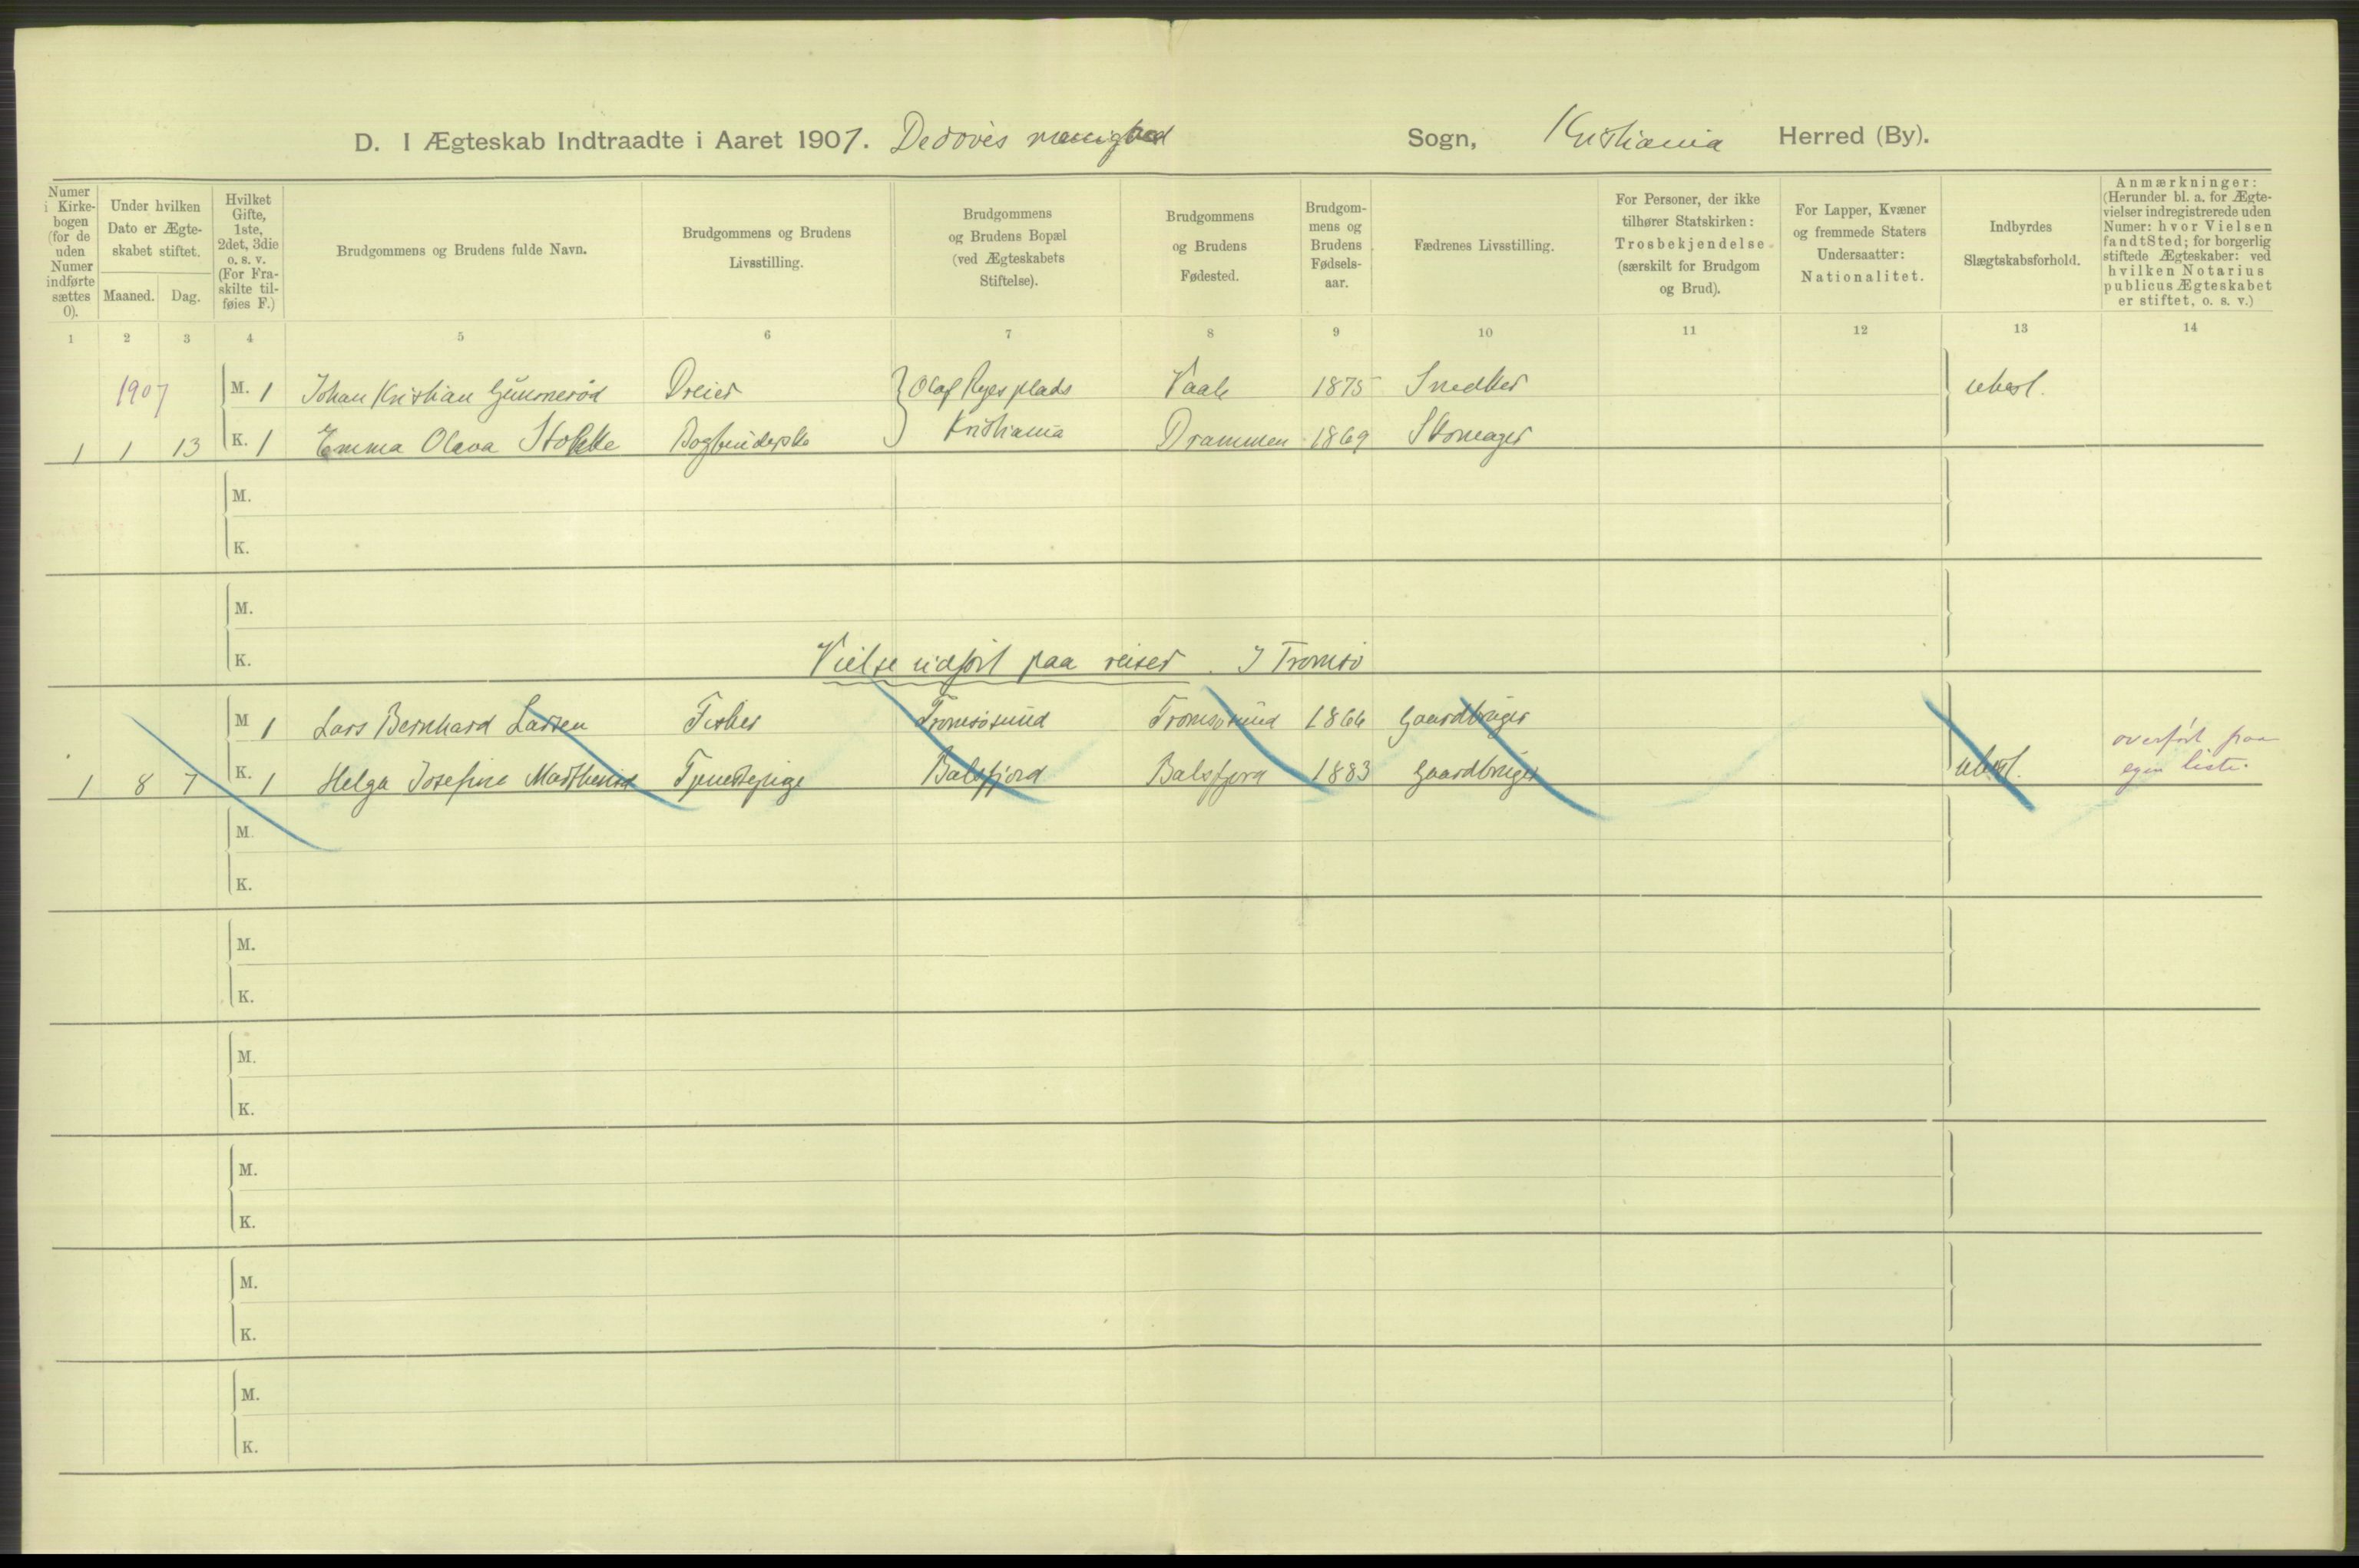 D. I Ægteskab Indtraadte i Aaret 1907. Dedovés menighed Sogn, Kristiania Herred (By).
Numer i Kirke-bogen (for de uden Numer indførte sættes 0).
Under hvilken Dato er Ægte-skabet stiftet.
Maaned. Dag.
Hvilket Gifte, 1ste, 2det, 3die o. s. v. (For Fra-skilte til-føies F.)
Brudgommens og Brudens fulde Navn.
Brudgommens og Brudens Livsstilling.
Brudgommens og Brudens Bopæl (ved Ægteskabets Stiftelse).
Brudgommens og Brudens Fødested.
Brudgom-mens og Brudens Fødsels-aar.
Fædrenes Livsstilling.
For Personer, der ikke tilhører Statskirken: Trosbekjendelse (særskilt for Brudgom og Brud).
For Lapper, Kvæner og fremmede Staters Undersaatter: Nationalitet.
Indbyrdes Slægtskabsforhold.
Anmærkninger: (Herunder bl. a. for Ægte-vielser indregistrerede uden Numer: hvor Vielsen fandt Sted; for borgerlig stiftede Ægteskaber: ved hvilken Notarius publicus Ægteskabet er stiftet, o. s. v.)
1 2 3 4 5 6 7 8 9 10 11 12 13 14
1907 M. 1 Johan Kristian Gunnerød Dreier Olaf Ryes plads Vaale 1875 Snedker ubesl.
1 1 13 K. 1 Emma Olava Stokke Bogbinderske Kristiania Drammen 1869 Skomager
M.
K.
M.
K. Vielse udført paa reiser. I Tromsø
M 1 Lars Bernhard Larsen Fisker Tromsøsund Tromsøsund 1866 Gaardbruger
1 8 7 K. 1 Helga Josefine Tjenestepige Balsfjord Balsfjord 1883 Gaardbruger ubesl. overført paa egen liste.
M.
K.
M.
K.
M.
K.
M.
K.
M.
K.
M.
K.